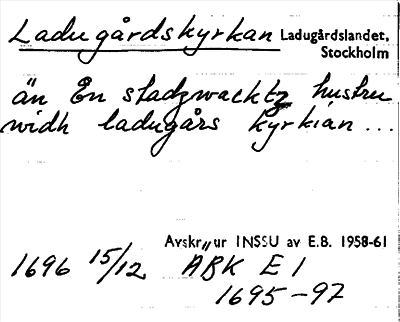 Ladugårdskyrkan Ladugårdslandet,
Stockholm
än En stadzwacktz hustru
widh ladugårs kyrkian ...
Avskr. ur INSSU av E.B. 1958-61
1696 15/12 ABK E 1
1695-97